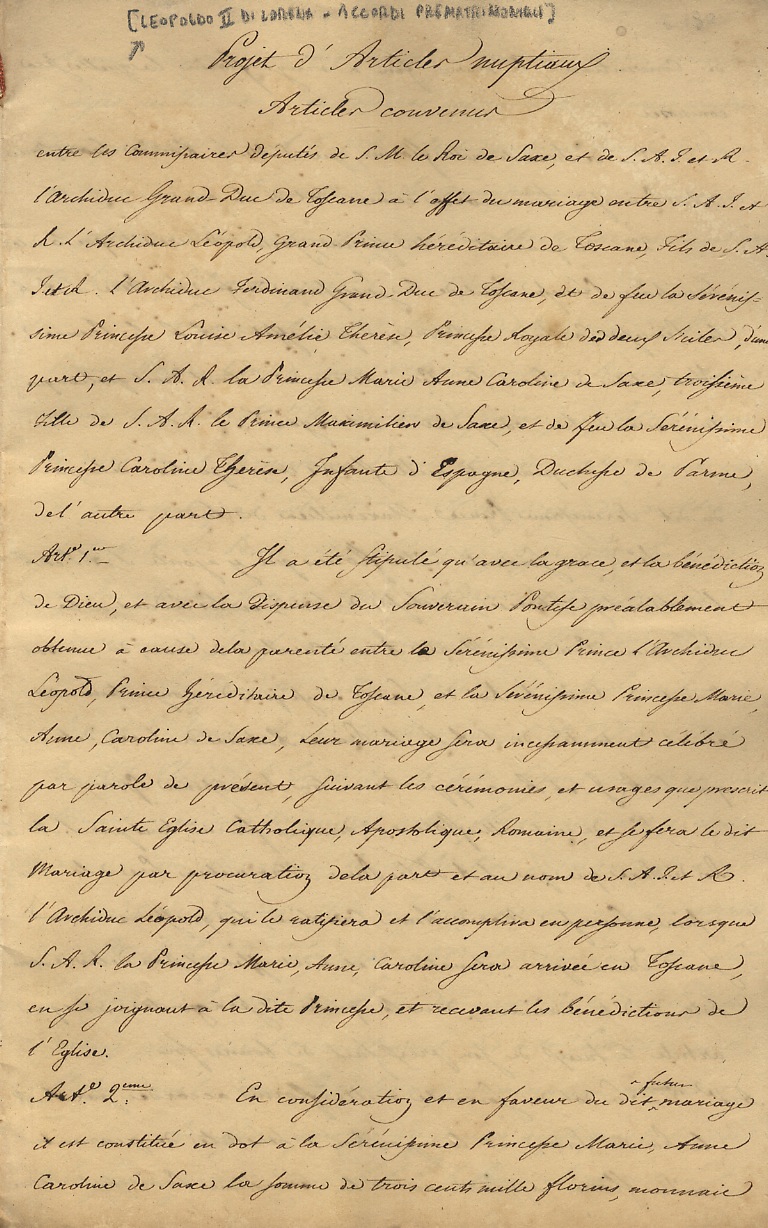 [LEOPOLDO II DI LORENA - ACCORDI PREMATRIMONIALI]
Projet d'Articles nuptiaux
Articles convenus
entre les Commissaires députés de S. M. le Roi de Saxe, et de S. A. I. et R.
l'Archiduc Grand-Duc de Toscane à l'effet du mariage entre S. A. I. et
R. L'Archiduc Léopold, Grand Prince héréditaire de Toscane, Fils de S. A.
I. et R. l'Archiduc Ferdinand Grand-Duc de Toscane, et de feu la Sérénis-
sime Princesse Louise Amélie Therèse, Princesse Royale des deux Siciles, d'une
part, et S. A. R. la Princesse Marie Anne Caroline de Saxe, troisième
Fille de S. A. R. le Prince Maximilien de Saxe, et de feu la Sérénissime
Princesse Caroline Therèse, Infante d'Espagne, Duchesse de Parme,
de l'autre part.
Art.e 1.er Il a été stipulé qu'avec la grace, et la bénédiction
de Dieu, et avec la dispense du Souverain Pontife préalablement
obtenue à cause dela parenté entre le Sérénissime Prince l'Archiduc
Léopold, Prince héréditaire de Toscane, et la Sérénissime Princesse Marie,
Anne, Caroline de Saxe, leur mariage sera incessamment célébré
par parole de présent, suivant les cérémonies, et usages que prescrit
la Sainte Eglise Catholique, Apostolique, Romaine, et se fera le dit
Mariage par procuration dela part et au nom de S. A. I. et R.
l'Archiduc Léopold, qui le ratifiera et l'accomplira en personne, lorsque
S. A. R. la Princesse Marie, Anne, Caroline sera arrivée en Toscane,
en se joignant à la dite Princesse, et recevant les bénédictions de
l'Eglise.
Art.e 2.eme En considération et en faveur du dit futur mariage
il est constitué en dot à la Sérénissime Princesse Marie, Anne
Caroline de Saxe la somme de trois cents mille florins, monnaie